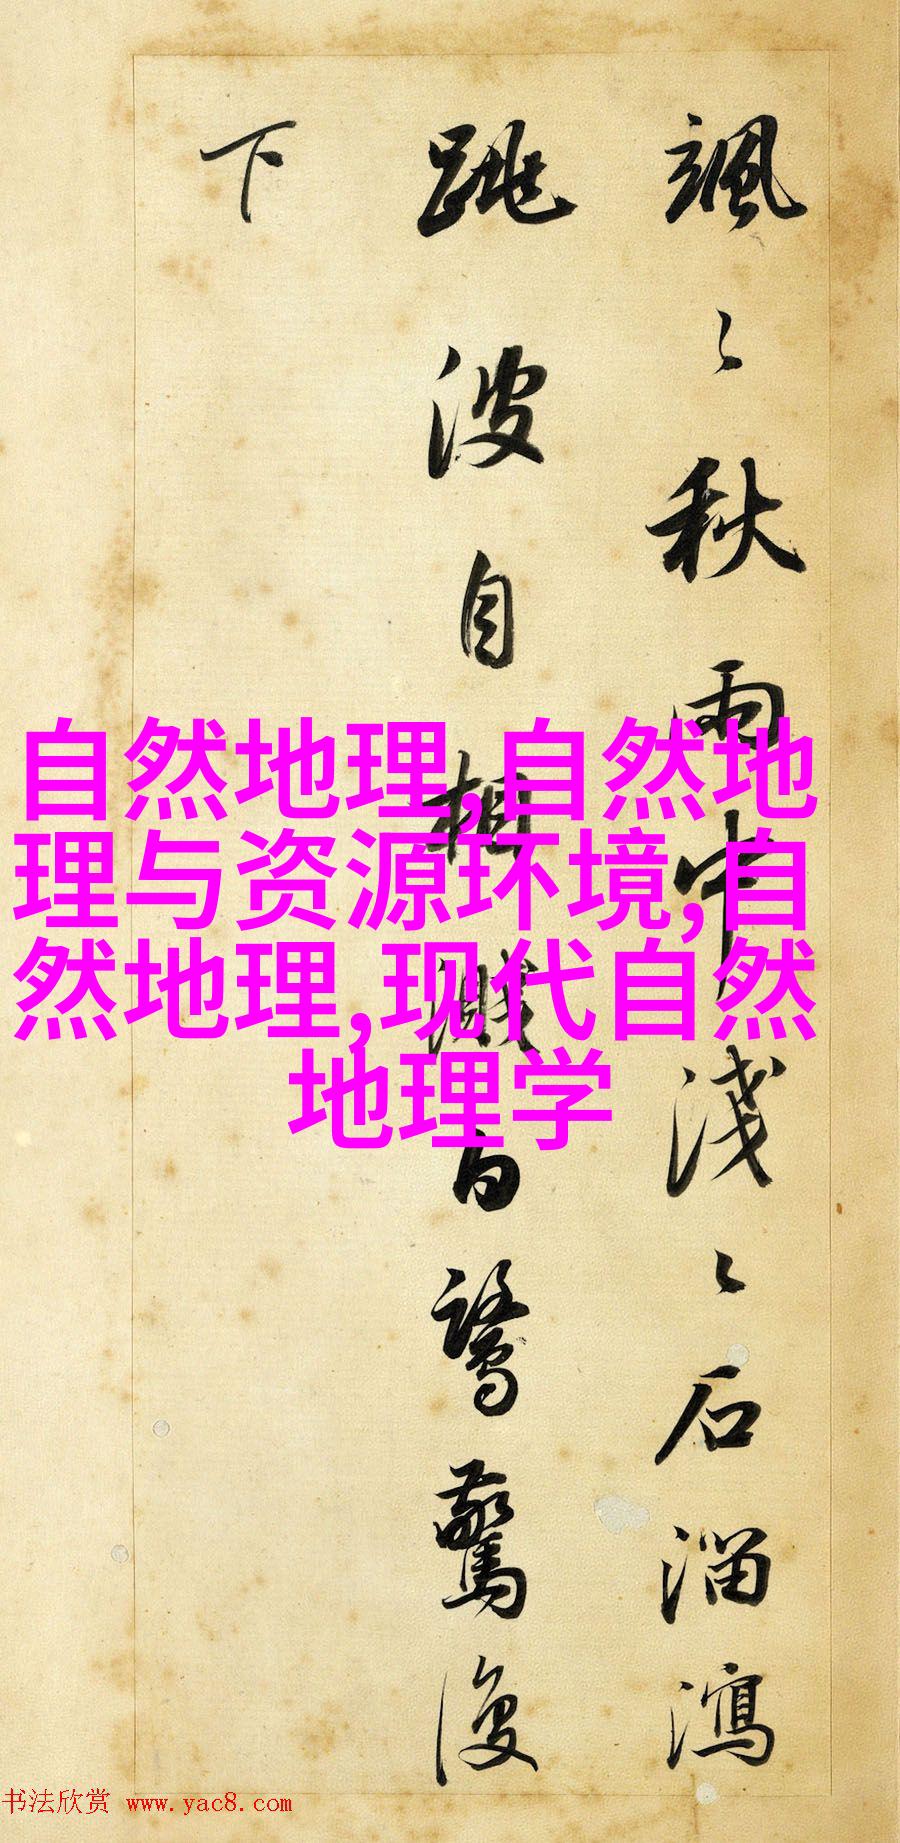 颯〻秋雨中淺〻石溜瀉
跳波自相濺白鷺驚復
下
自然地理,自然地
理与资源环境,自
然地理,现代自然
地理学
书法欣赏 www.yac8.com